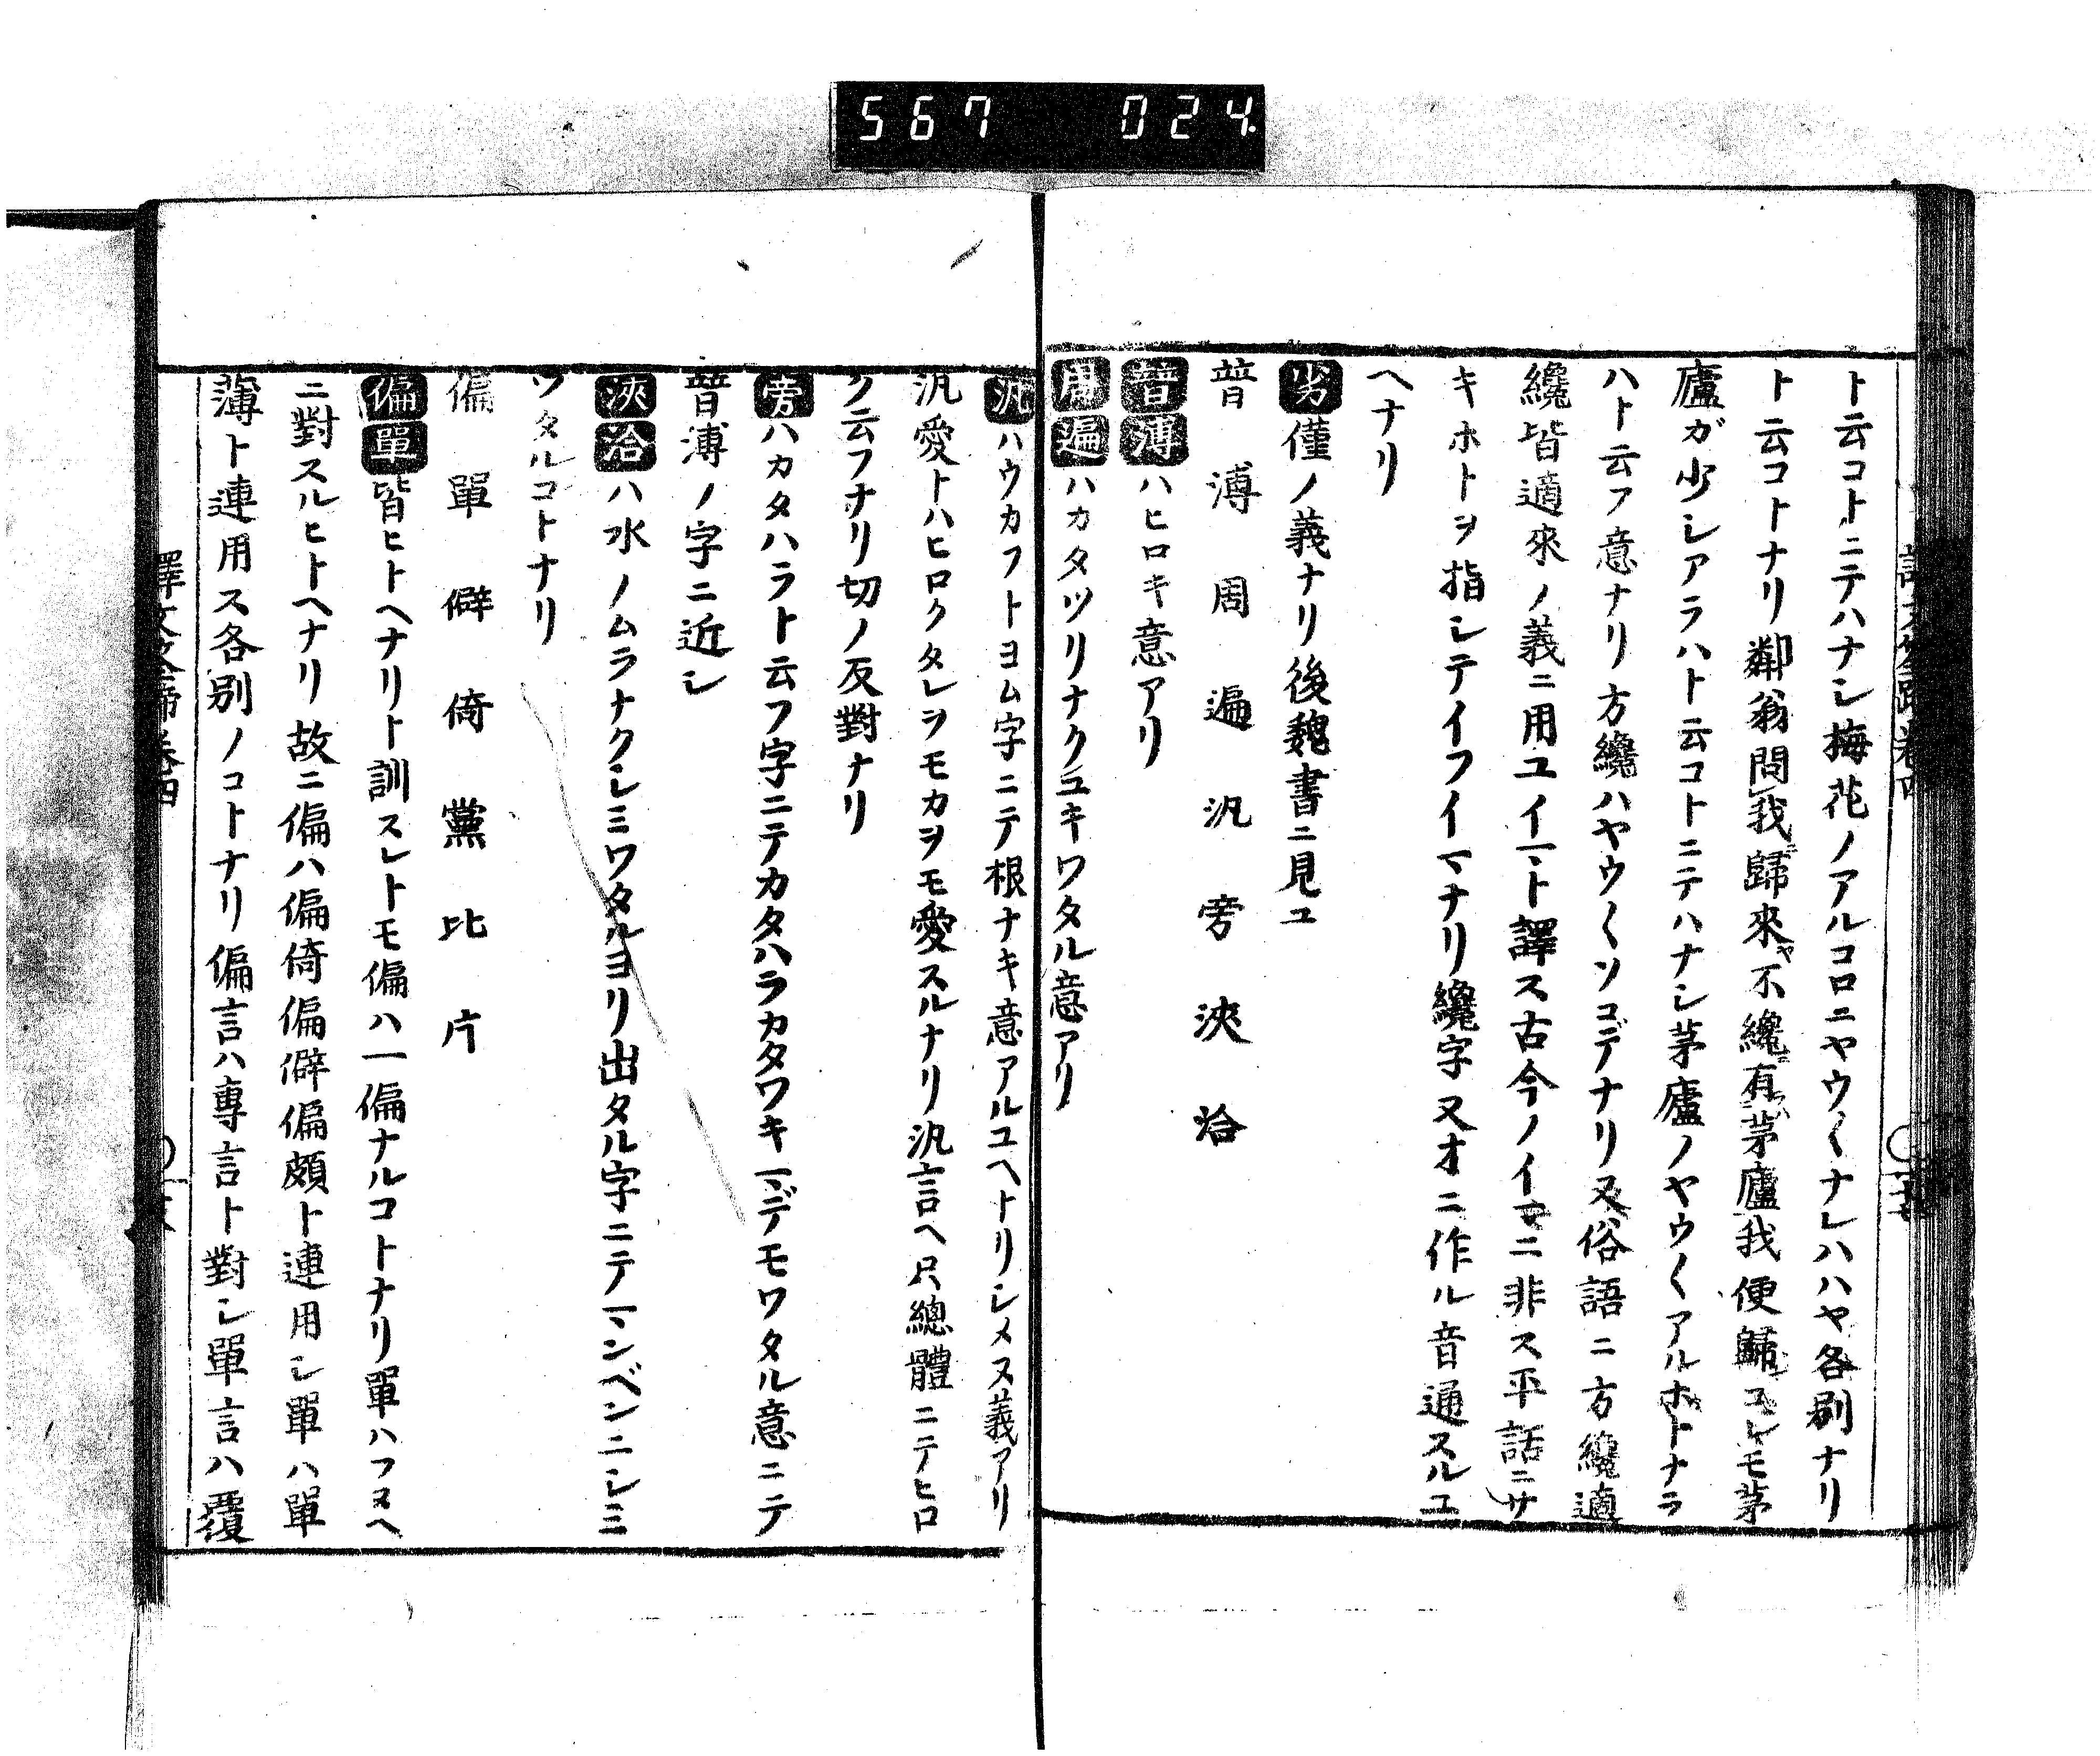 567 024
ト云コトニテハナシ梅花ノアルコロニヤウ〱ナレハハヤ各別ナリ
ト云コトナリ鄰翁問我歸來不纔有茅廬我便歸コレモ茅
廬ガ少シアラハト云コトニテハナシ茅廬ノヤウ〱アルホトナラ
ハト云フ意ナリ方纔ハヤウ〱ソコデナリ又俗語ニ方纔適
纔皆適來ノ義ニ用ユイマト譯ス古今ノイマニ非ス平話ニサ
キホトヲ指シテイフイマナリ纔字又才ニ作ル音通スルユ
ヘナリ
劣僅ノ義ナリ後魏書ニ見ユ
普 溥 周 遍 汎 旁 浹 洽
普溥ハヒロキ意アリ
周遍ハカタツリナクユキワタル意アリ
汎ハウカフトヨム字ニテ根ナキ意アルユヘトリシメヌ義アリ
汎愛トハヒロクタレヲモカヲモ愛スルナリ汎言ヘ只總體ニテヒロ
ク云フナリ切ノ反對ナリ
旁ハカタハラト云フ字ニテカタハラカタワキマデモワタル意ニテ
普溥ノ字ニ近シ
浹洽ハ水ノムラナクシミワタルヨリ出タル字ニテマンベンニシミ
ワタルコトナリ
偏 單 僻 倚 黨 比 片
偏單皆ヒトヘナリト訓スレトモ偏ハ一偏ナルコトナリ單ハフタヘ
ニ對スルヒトヘナリ故ニ偏ハ偏倚偏僻偏頗ト連用シ單ハ單
薄ト連用ス各別ノコトナリ偏言ハ專言ト對シ單言ハ覆